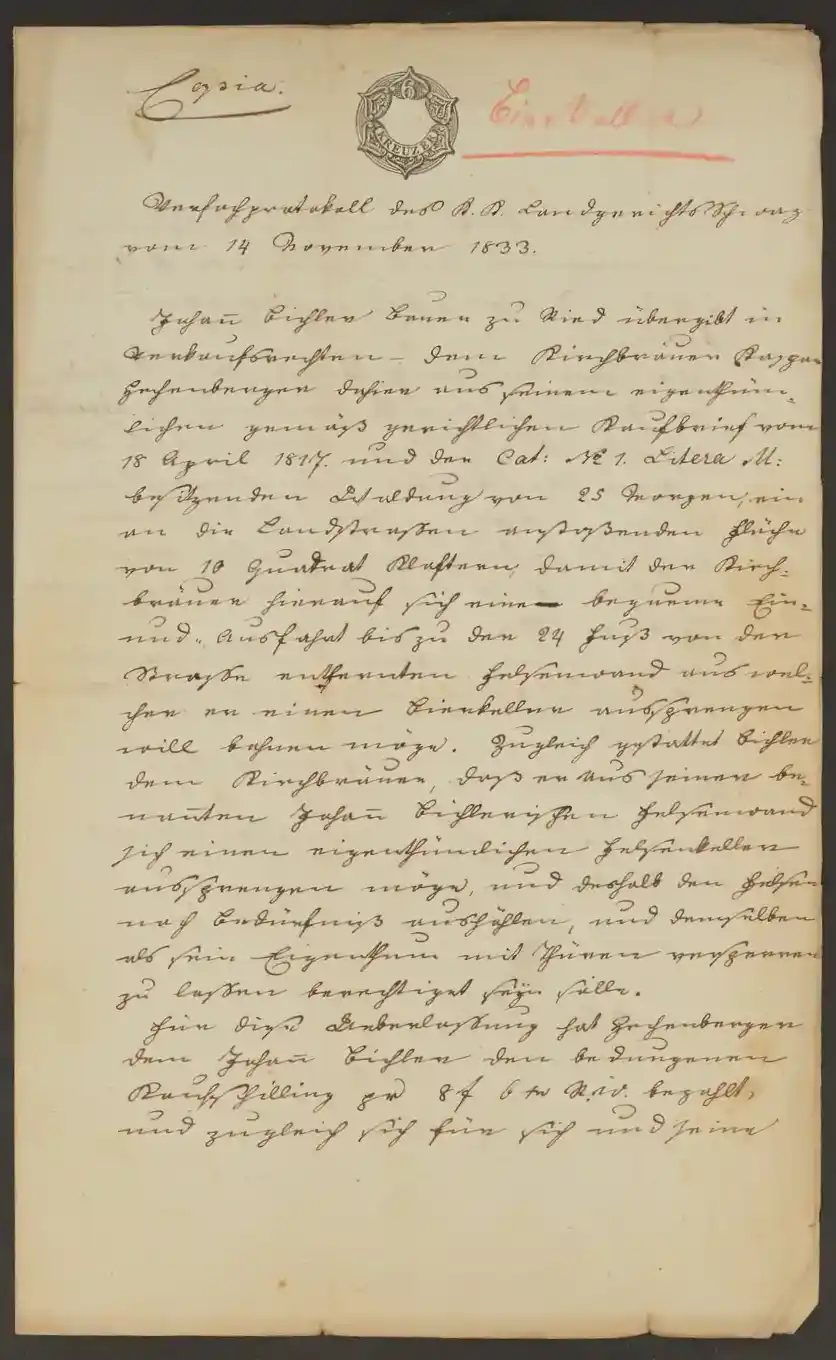 Copia.
6
KREUZER
Verfachprotokoll des K. K. Landgerichts Schwaz
vom 14 November 1833.
Johan̄ Bichler Bauer zu Ried übergibt in
Verkaufsrechten dem Kirchbräuer Kaspar
Hechenberger dahier aus seinem eigenthüm-
lichen gemäß gerichtlichen Kaufbrief vom
18 April 1817. und der Cat: № 1. Litera M:
besitzenden Waldung von 25 Morgen, ein
an die Landstrassen anstoßenden Fläche
von 10 Quadrat Klaftern, damit der Kirch-
bräuer hierauf sich eine bequeme Ein-
und Ausfahrt bis zu der 24 Fuß von der
Strasse entfernten Felsenwand aus wel-
cher er einen Bierkeller aussprengen
will bahnen möge. Zugleich gestattet Bichler
dem Kirchbräuer, daß er aus seiner be-
nan̄ten Johan̄ Bichlerischen Felsenwand
sich einen eigenthümlichen Felsenkeller
aussprengen möge, und deshalb den Felsen
nach Bedürfniß aushöhlen, und demselben
als sein Eigenthum mit Thüren versperren
zu lassen berechtiget seyn solle.
Für diese Ueberlassung hat Hechenberger
dem Johan̄ Bichler den bedungenen
Kaufschilling pr 8 f 6 kr R.W. bezahlt,
und zugleich sich für sich und seine